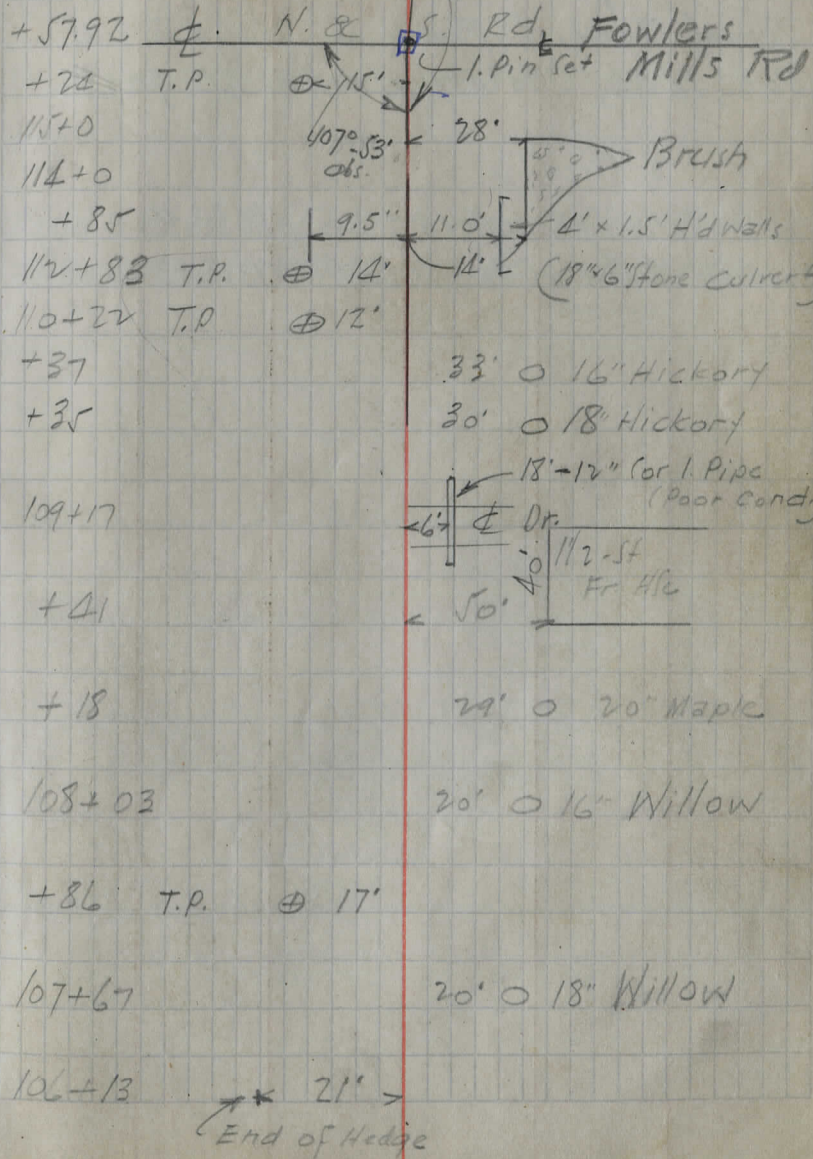 +57.92 ℄ N. & S. Rd, Fowlers
+21 T.P. ⊕ 15' 1. Pin Set Mills Rd
115+0 407°-53' 28' Brush
114+0 obs.
+85 9.5" 11.0' 4' × 1.5' H'd Walls
112+83 T.P. ⊕ 14' 14' (18"×6" Stone Culvert)
110+22 T.P ⊕ 12'
+37 33' O 16" Hickory
+35 30' O 18" Hickory
18'-12" Cor 1. Pipe
(Poor Cond)
109+17 6' ℄ Dr.
40' 1 1/2-St
Fr Hse
+41 50'
+18 29' O 20" Maple
108+03 20' O 16" Willow
+86 T.P. ⊕ 17'
107+67 20' O 18" Willow
106+13 21'
End of Hedge